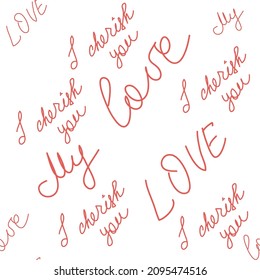 LOVE
I cherish
you
My
I cherish
you
love
I cherish
you
My
LOVE
I cherish
you
I cherish
you
shutterstock.com · 2095474516